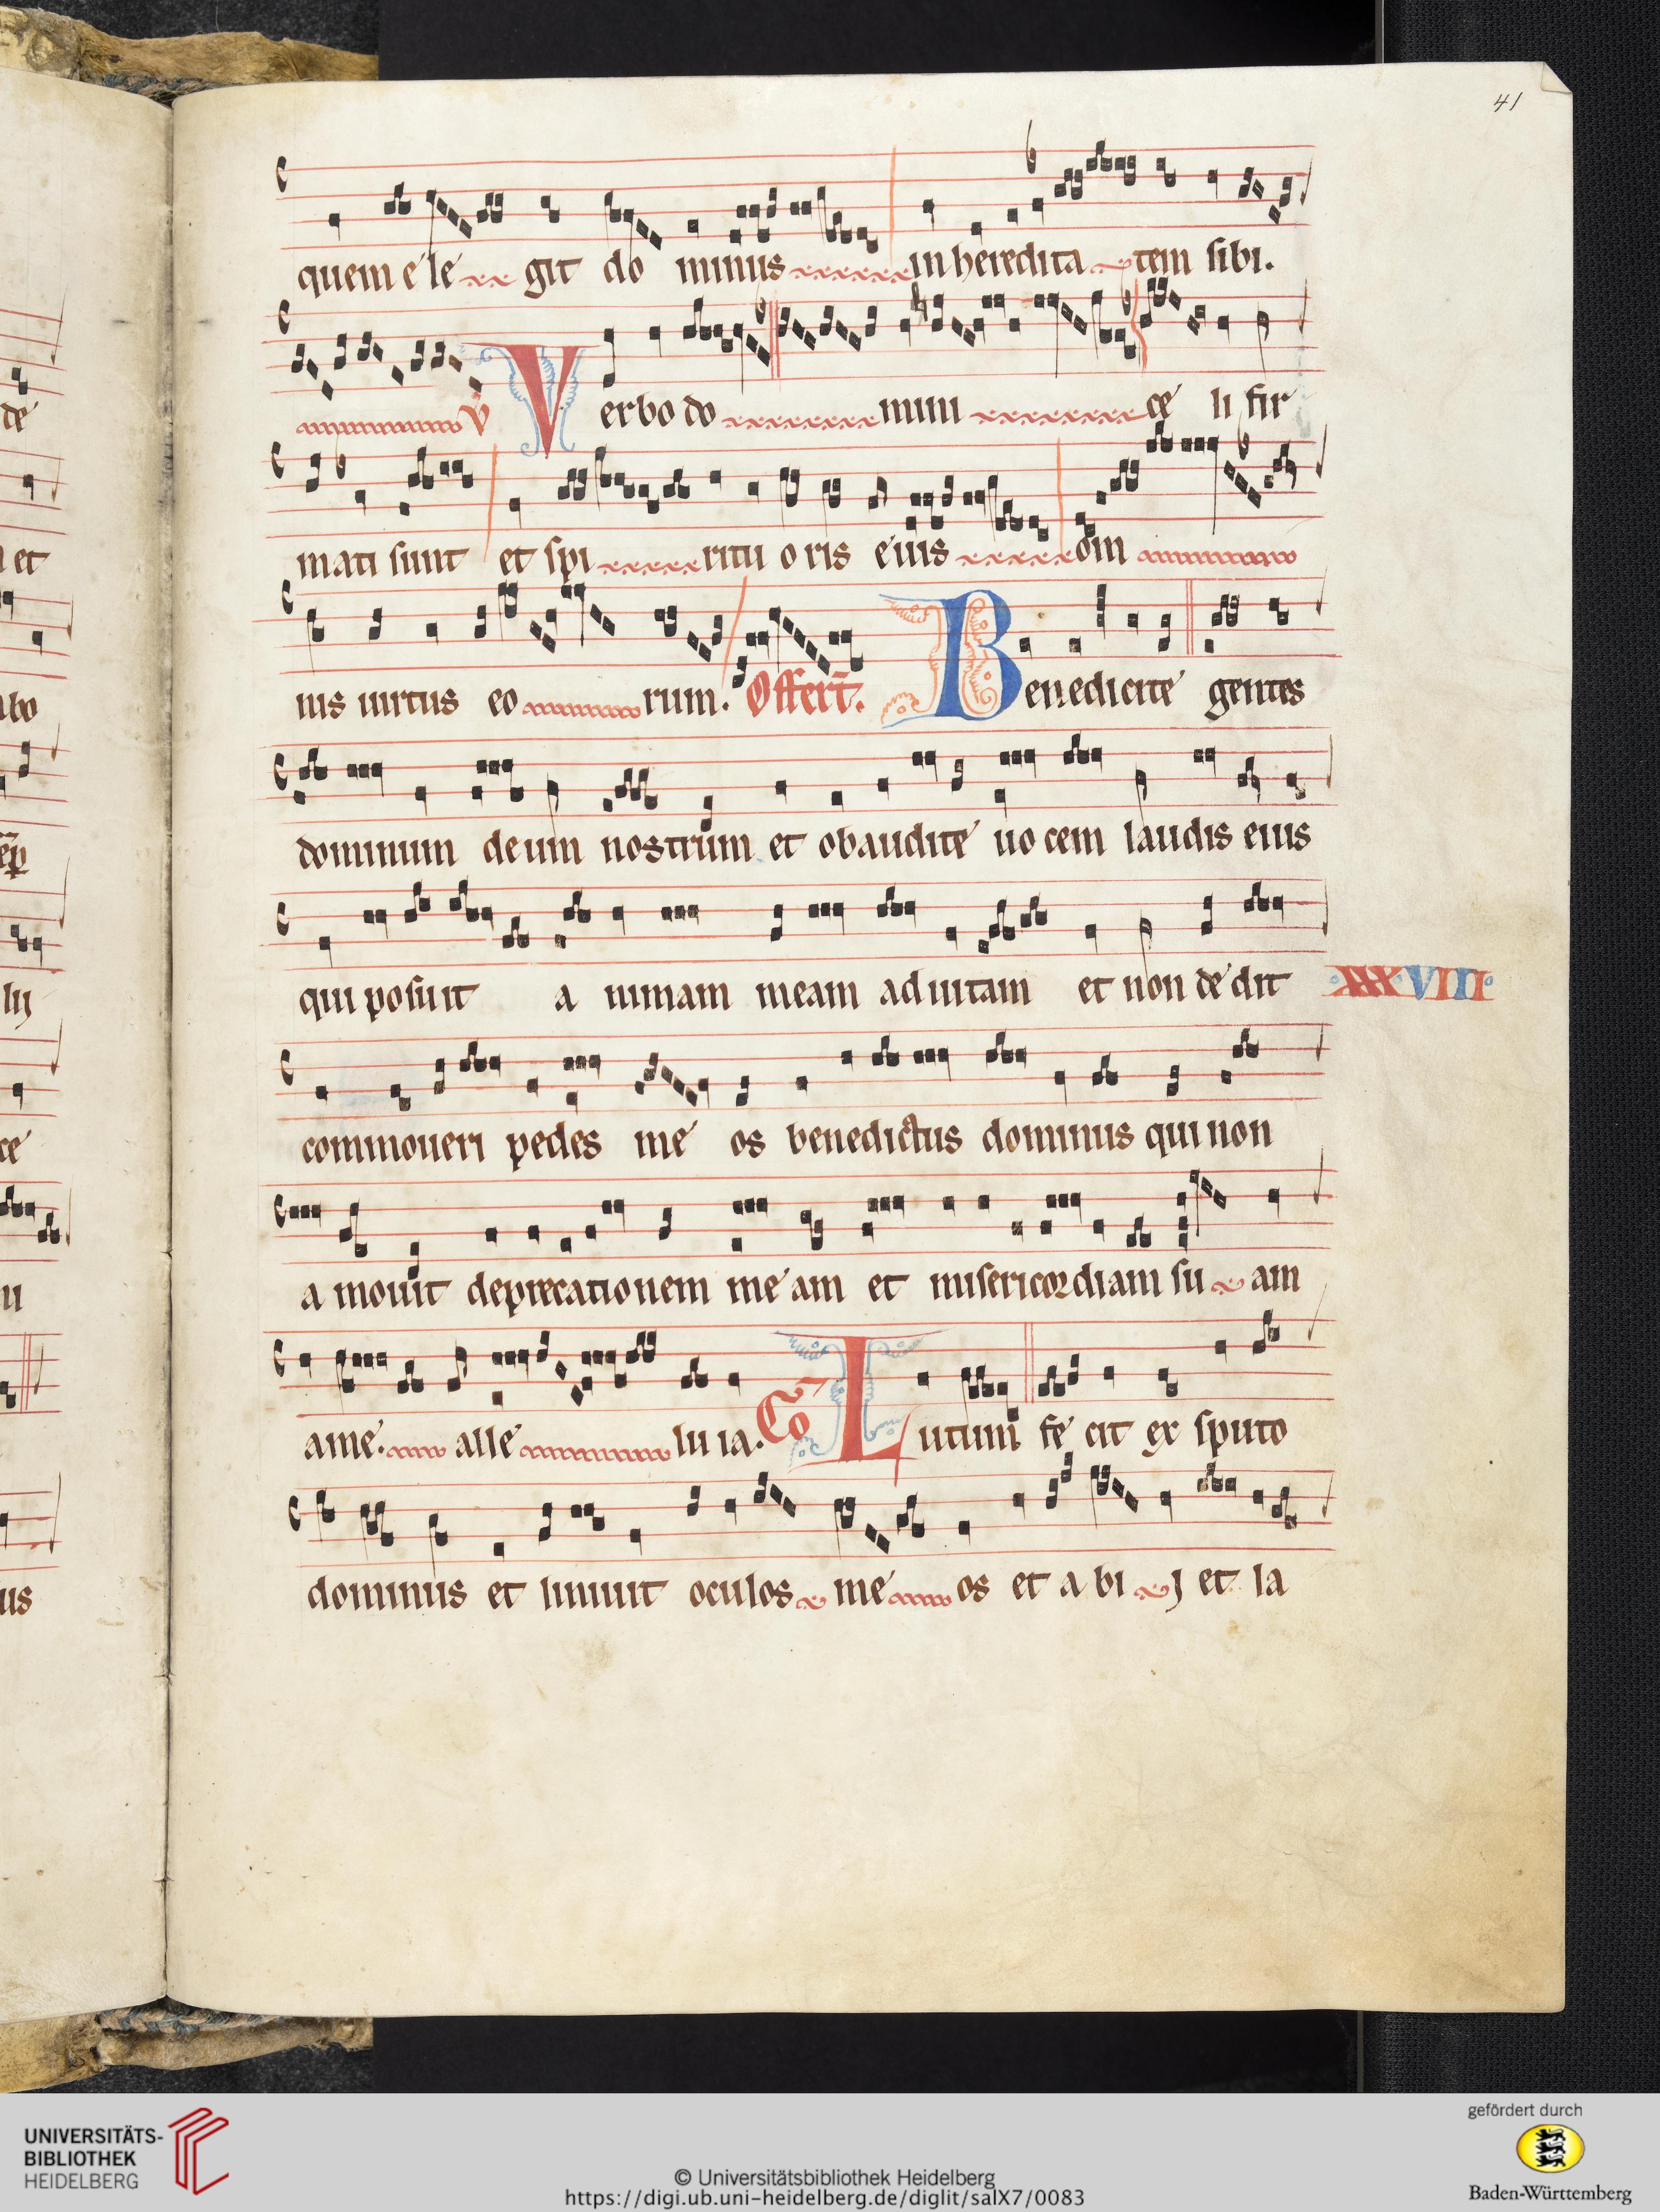 41
quem e le git do minus in heredita tem sibi.
V Verbo do mini cę li fir
mati sunt et spi ritu o ris eius om
nis uirtus eo rum. Offert. Benedicite gentes
dominum deum nostrum et obaudite uo cem laudis eius
qui posuit a nimam meam ad uitam et non de dit XXXVIII
commoueri pedes me os benedictus dominus qui non
a mouit deprecationem me am et misericordiam su am
a me. alle lu ia. Co Lutum fe cit ex sputo
dominus et liniuit oculos me os et a bi j et la
de
et
abo
lij
ce
u
us
UNIVERSITÄTS-
BIBLIOTHEK
HEIDELBERG
© Universitätsbibliothek Heidelberg
https://digi.ub.uni-heidelberg.de/diglit/salX7/0083
gefördert durch
Baden-Württemberg